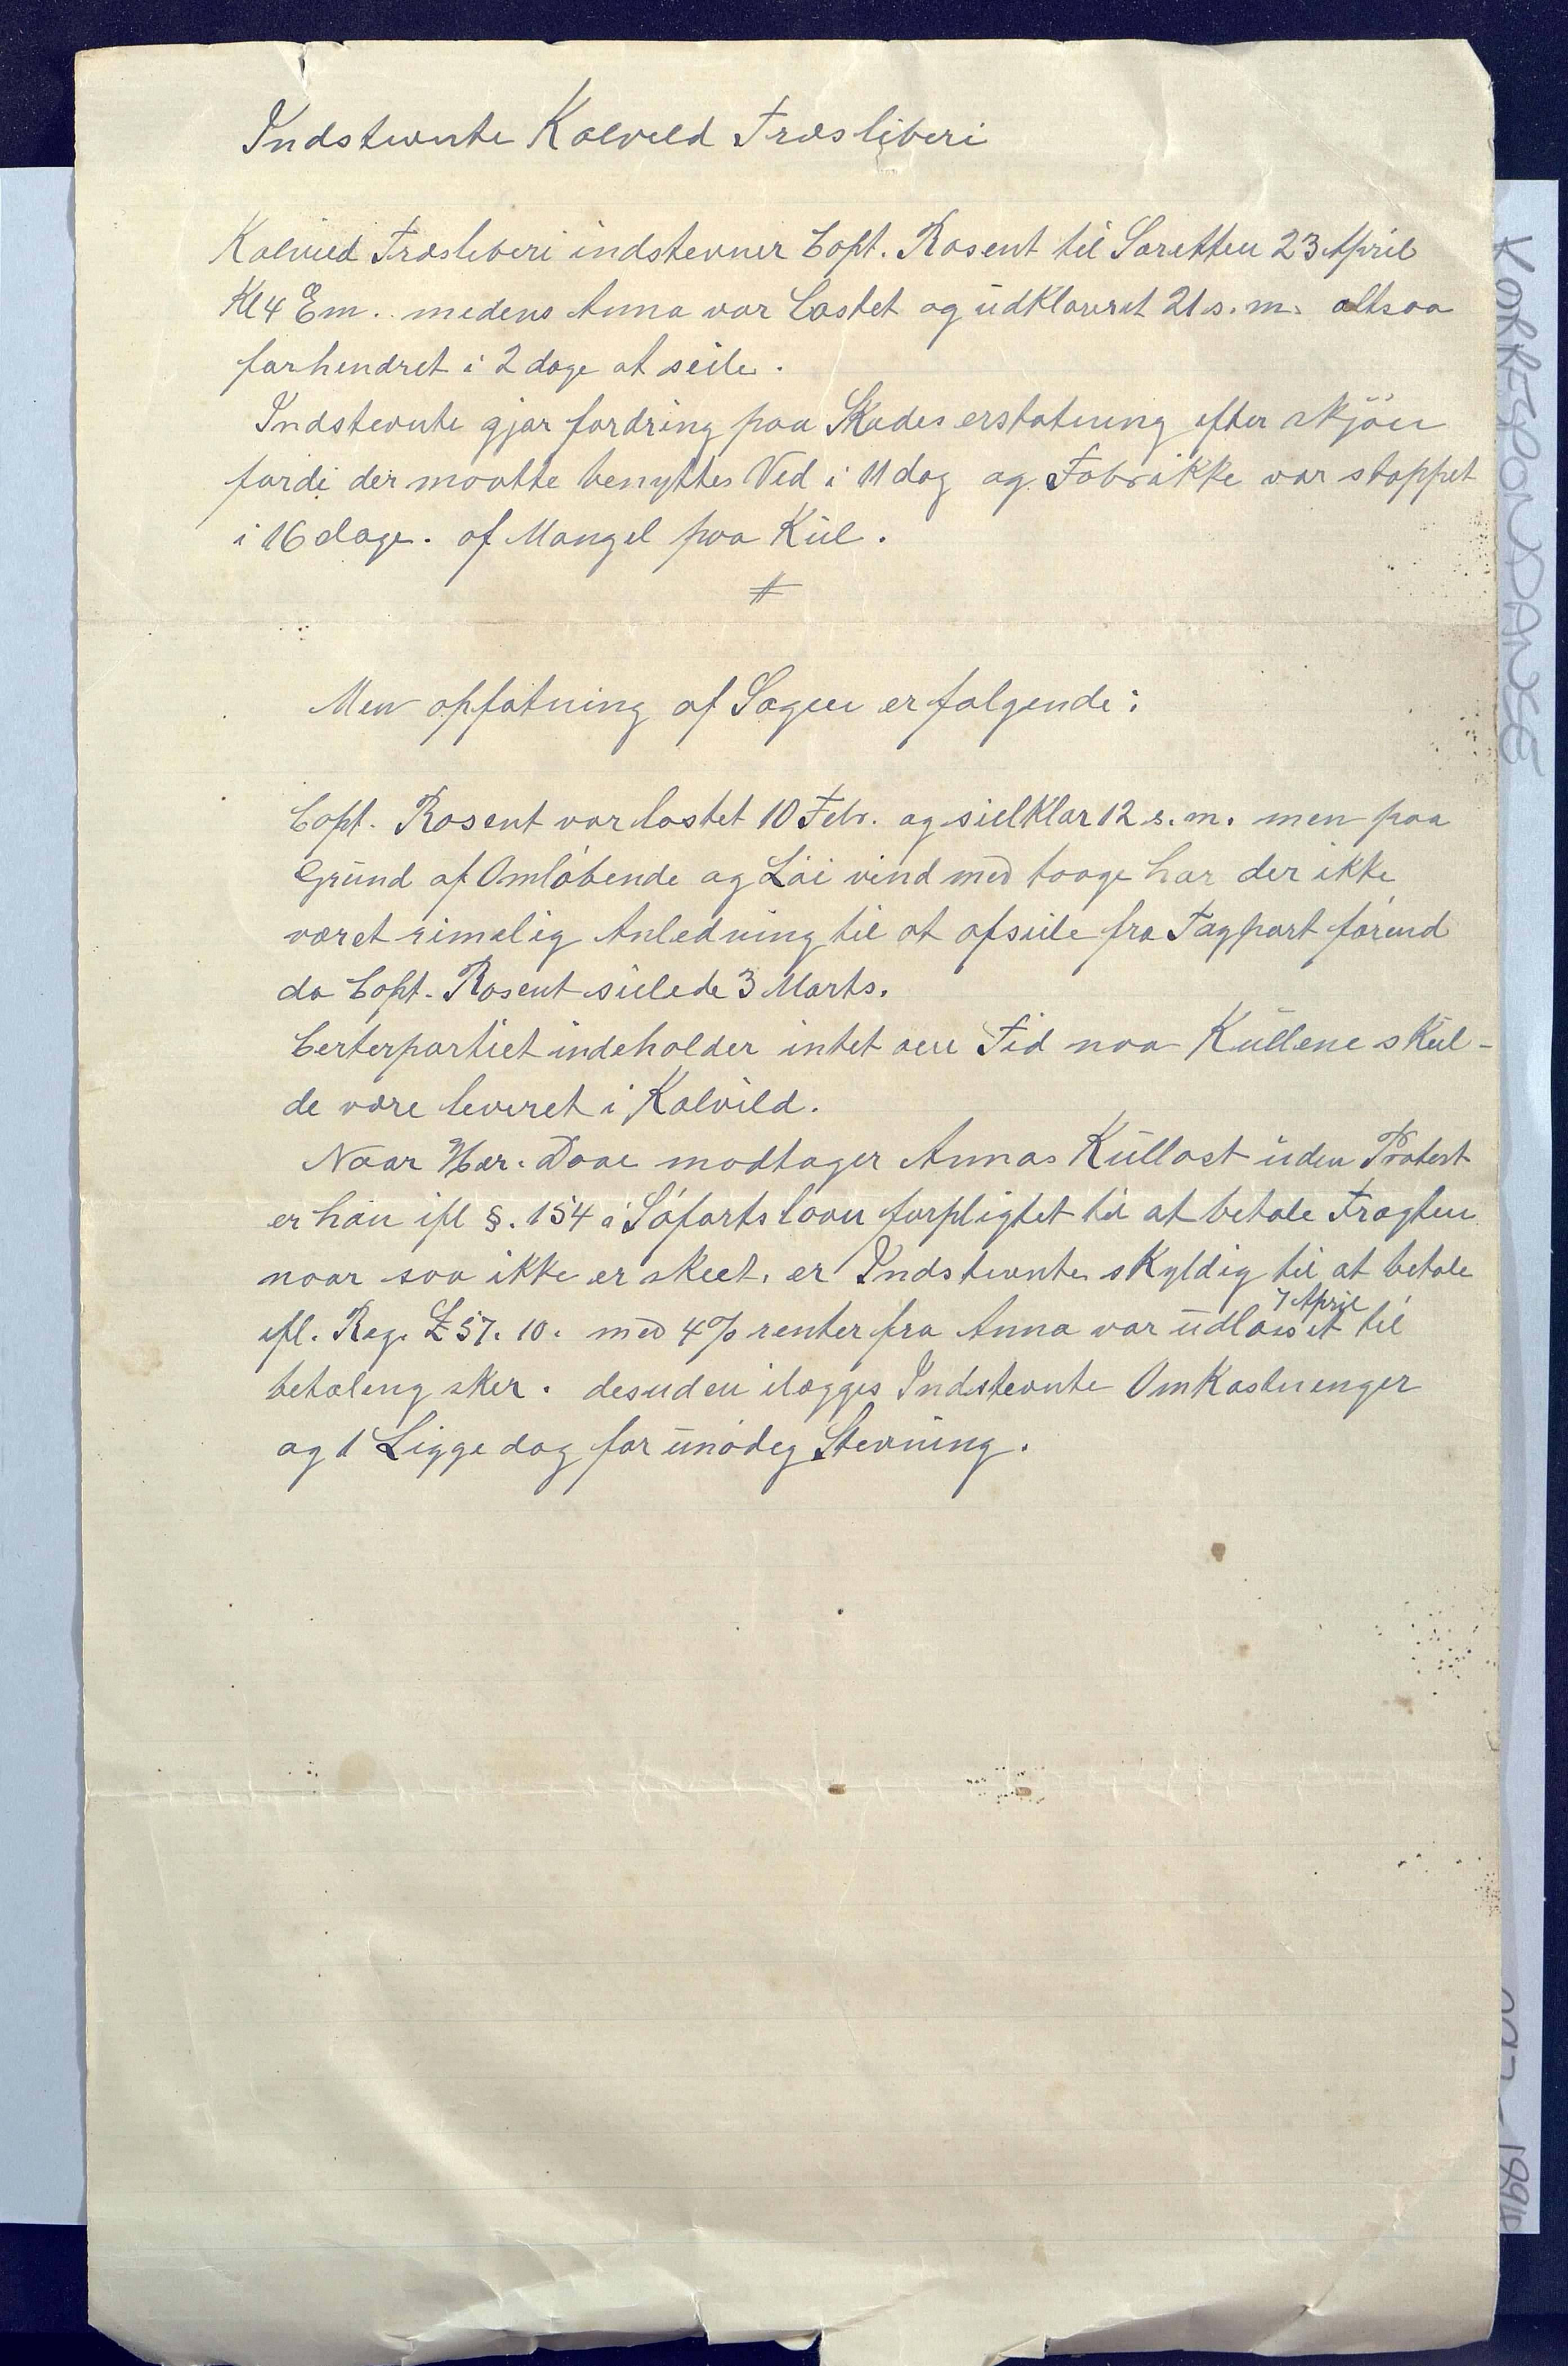 Indstevnte Kalvild Træsliberi
Kalvild Træsliberi indstevner Capt. Rosent til Søretten 23 April
Kl 4 Em. medens Anna var lastet og udklareret 21 s. m. altsaa
forhendret i 2 dage at seile.
Indstevnte gjør fordring paa Skades erstatning efter skjön
fordi der maatte benyttes Ved i 11 dag og Fabrikke var stoppet
i 16 dage. af Mangel paa Kul.
Men opfatning af Sagen er følgende:
Capt. Rosent var lastet 10 Febr. og sielklar 12 s. m. men paa
Grund af Omløbende og Løi vind med taage har der ikke
været rimelig Anledning til at afseile fra Tayport förend
da Capt. Rosent seilede 3 Marts.
Certerpartiet indeholder intet om Tid naa Kullene skul-
de være leveret i Kalvild.
Naar Hær. Daae modtager Annas Kullast uden Protest
er han ifl §. 154 i Söfarts loven forpligtet til at betale Fragten
naar saa ikke er skeet. er Indstevnte skyldig til at betale
7 April
ifl. Reg. £ 57. 10. med 4 % renter fra Anna var udlosset til
betaleng sker. desuden ilægges Indstevnte Omkostnenger
og 1 Liggedag for unödeg Stevning.
KORRESPONDANSE
1994